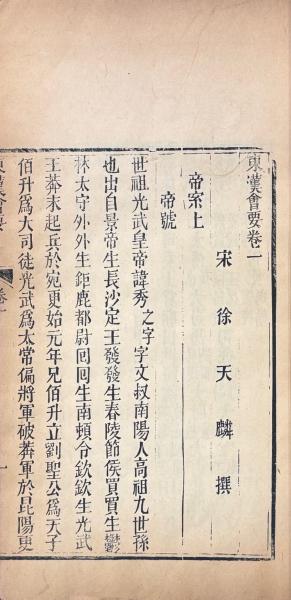 東漢會要卷一
宋徐天麟撰
帝系上
帝號
世祖光武皇帝諱秀之字字文叔南陽人高祖九世孫
也出自景帝生長沙定王發發生舂陵節侯買買生鬱
林太守外外生鉅鹿都尉囘囘生南頓令欽欽生光武
王莽末起兵於宛更始元年兄伯升立劉聖公爲天子
伯升爲大司徒光武爲太常偏將軍破莽軍於昆陽更
東漢會要
卷一
一